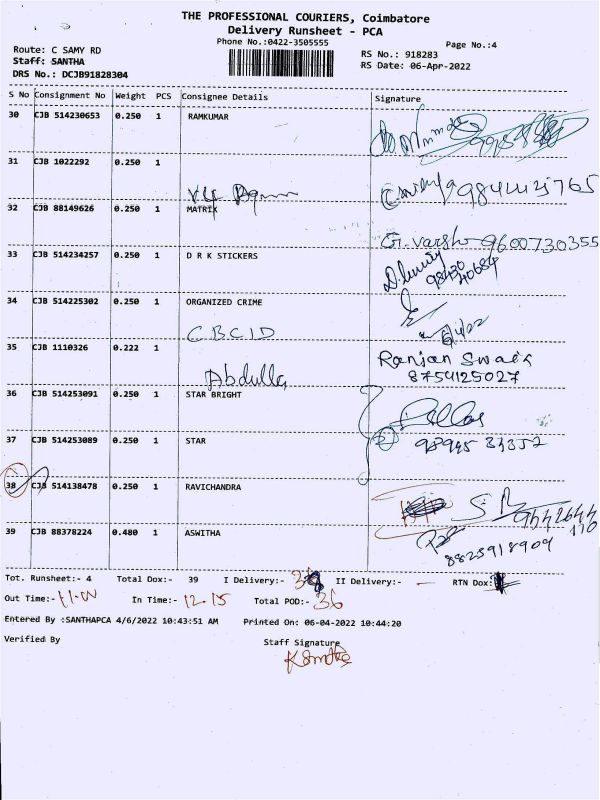 THE PROFESSIONAL COURIERS, Coimbatore
Delivery Runsheet - PCA
Phone No.:0422-3505555
Page No.:4
Route: C SAMY RD
RS No.: 918283
Staff: SANTHA
RS Date: 06-Apr-2022
DRS No.: DCJB91828304
S No Consignment No Weight PCS Consignee Details Signature
30 CJB 514230653 0.250 1 RAMKUMAR
31 CJB 1022292 0.250 1
32 CJB 88149626 0.250 1 MATRIX
G. Varsh 9600730355
33 CJB 514234257 0.250 1 D R K STICKERS
98430
40684
34 CJB 514225302 0.250 1 ORGANIZED CRIME
CBCID
35 CJB 1110326 0.222 1 Ranjan Swain
8754125027
Abdulla
36 CJB 514253091 0.250 1 STAR BRIGHT
37 CJB 514253089 0.250 1 STAR
98945 33352
38 CJB 514138478 0.250 1 RAVICHANDRA
39 CJB 88378224 0.480 1 ASWITHA
8825918909
Tot. Runsheet:- 4 Total Dox:- 39 I Delivery:- II Delivery:- — RTN Dox:
Out Time:- 11.00 In Time:- 12.15 Total POD:- 36
Entered By :SANTHAPCA 4/6/2022 10:43:51 AM Printed On: 06-04-2022 10:44:20
Verified By Staff Signature